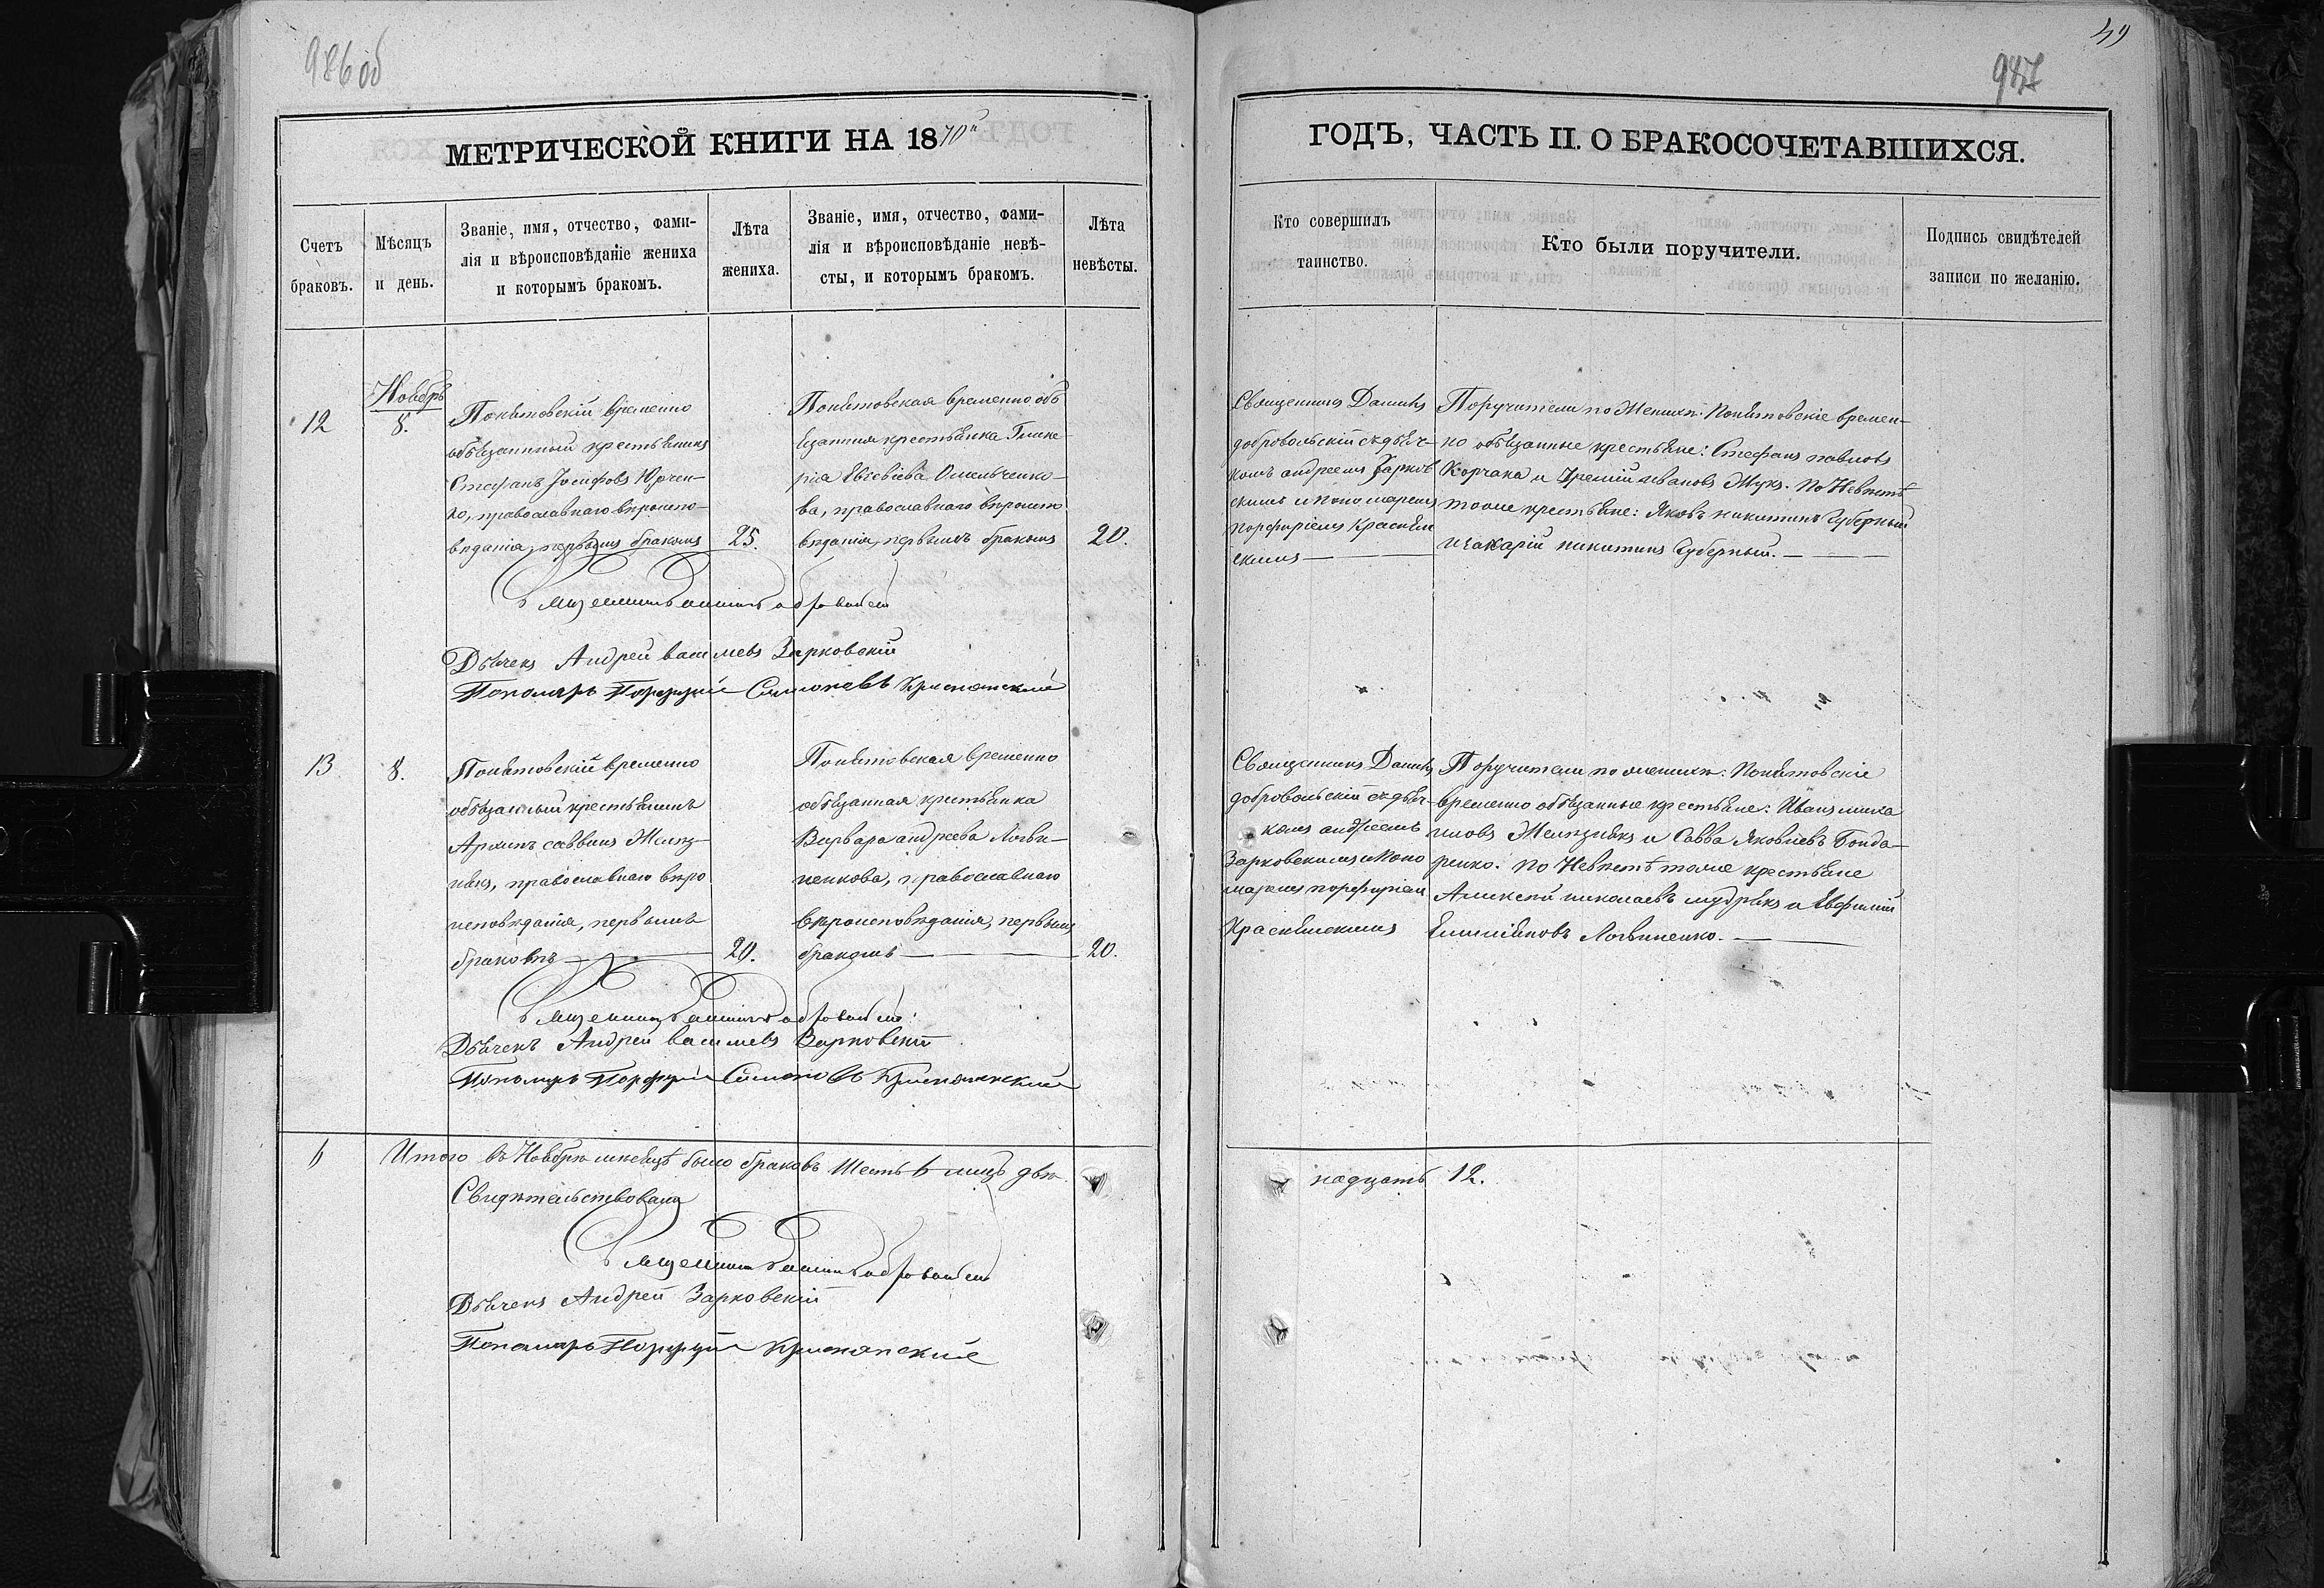 986 об
49
987
МЕТРИЧЕСКОЙ КНИГИ НА 1870й
ГОДЪ, ЧАСТЬ II. О БРАКОСОЧЕТАВШИХСЯ.
Счетъ
браковъ.
Мѣсяцъ
и день.
Званіе, имя, отчество, фами-
лія и вѣроисповѣданіе жениха
и которымъ бракомъ.
Лѣта
жениха.
Званіе, имя, отчество, фами-
лія и вѣроисповѣданіе невѣ-
сты, и которымъ бракомъ.
Лѣта
невѣсты.
Кто совершилъ
таинство.
Кто были поручители.
Подпись свидѣтелей
записи по желанію.
12
Ноябрь
8.
Понятовскій временно
обязанный крестьянинъ
Стефанъ Іосифовъ Юрчен-
ко, православнаго вѣроиспо-
вѣданія, первымъ бракомъ
25.
Понятовская временно об
язанная крестьянка Глике-
рія Евсевіева Омельченко-
ва, православнаго вѣроиспо
вѣданія, первымъ бракомъ
20.
Священникъ Даніилъ
добровольскій съ дьяч-
комъ андреемъ Зарков
скимъ и пономаремъ
порфиріемъ Краснян
скимъ
Поручители по Женихѣ: Понятовскіе времен-
но обязанные крестьяне: Стефанъ павловъ
Корчака и Іремій ивановъ Жукъ. По Невѣстѣ
тоже крестьяне: Яковъ никитинъ Губерный
и захарій никитинъ Губерный.
Священникъ Даніилъ Добровольскій
Дьячекъ Андрей васильевъ Зарковскій
Пономарь Порфирій Симоневъ Краснянскій
13
8.
Понятовскій временно
обязанный крестьянинъ
Архипъ саввинъ Желѣз-
някъ, православнаго вѣро
исповѣданія, первымъ
бракомъ
20.
Понятовская временно
обязанная крестьянка
Варвара андреева Логви-
ненкова, православнаго
вѣроисповѣданія, первымъ
бракомъ
20.
Священникъ Даніилъ
добровольскій съ дьяч-
комъ андреемъ
Зарковскимъ и Поно
маремъ порфиріем
Краснянскимъ
Поручители по женихѣ: Понятовскіе
временно обязанные крестьяне: Иванъ миха
иловъ Желѣзнякъ и Савва Яковлевъ Бонда-
ренко. По Невѣстѣ тоже крестьяне
Алексѣй николаевъ мудракъ и Евфимій
Емиліановъ Логвиненко.
Священникъ Даніилъ Добровольскій
Дьячекъ Андрей васильевъ Зарковскій
Пономарь Порфирій Симоновъ Краснянскій
6
Итого въ Ноябрѣ мѣсяцѣ было браковъ Шесть 6 лицъ двѣ
надцать 12.
Свидѣтельствовали
Священникъ Даніилъ Добровольскій
Дьячекъ Андрей Зарковскій
Пономарь Порфирій Краснянскій